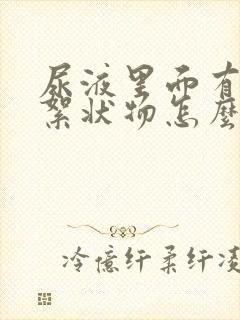 尿液里面有
絮状物怎麼
冷億纤柔纤凌